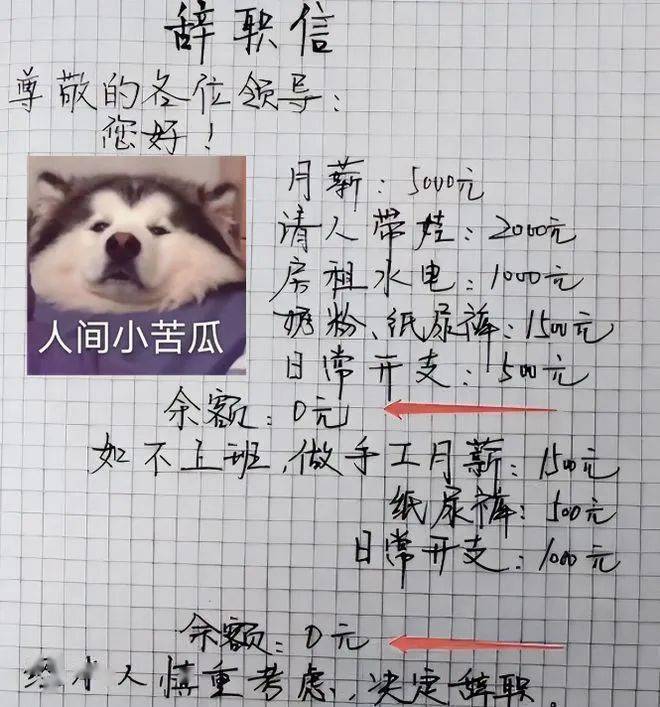 辞职信
尊敬的各位领导：
您好！
月薪：5000元
请人带娃：2000元
房租水电：1000元
奶粉、纸尿裤：1500元
日常开支：500元
人间小苦瓜
余额：0元
如不上班，做手工月薪：1500元
纸尿裤：500元
日常开支：1000元
余额：0元
经本人慎重考虑，决定辞职。